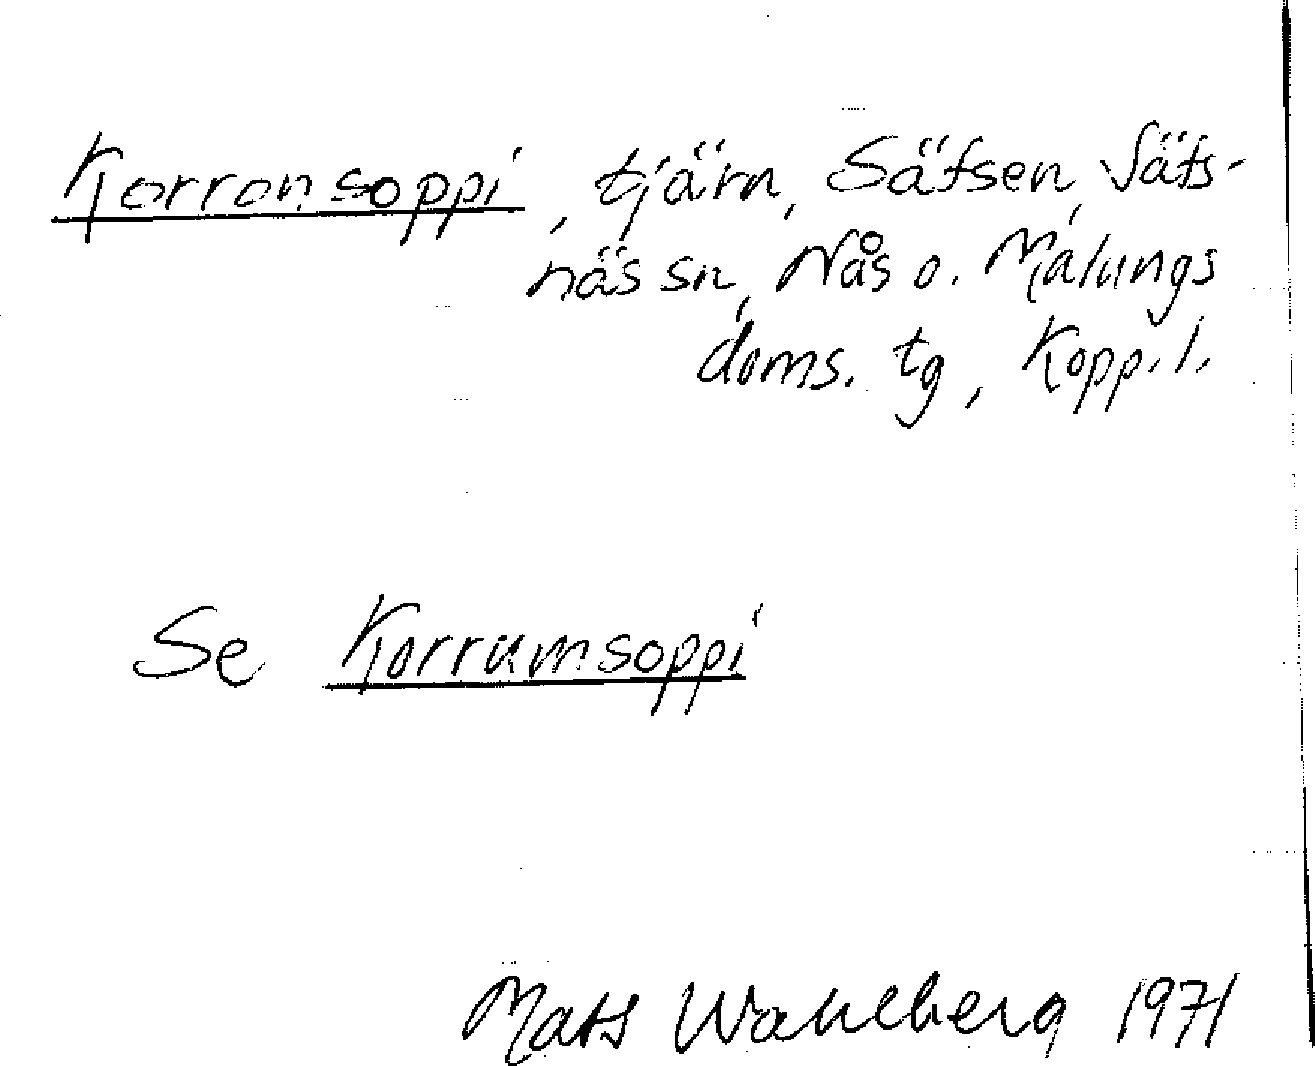 Korronsoppi, tjärn, Säfsen, Säfs-
näs sn, Nås o. Malungs
doms. tg, Kopp. l.
Se Korrumsoppi
Mats Wahlberg 1971